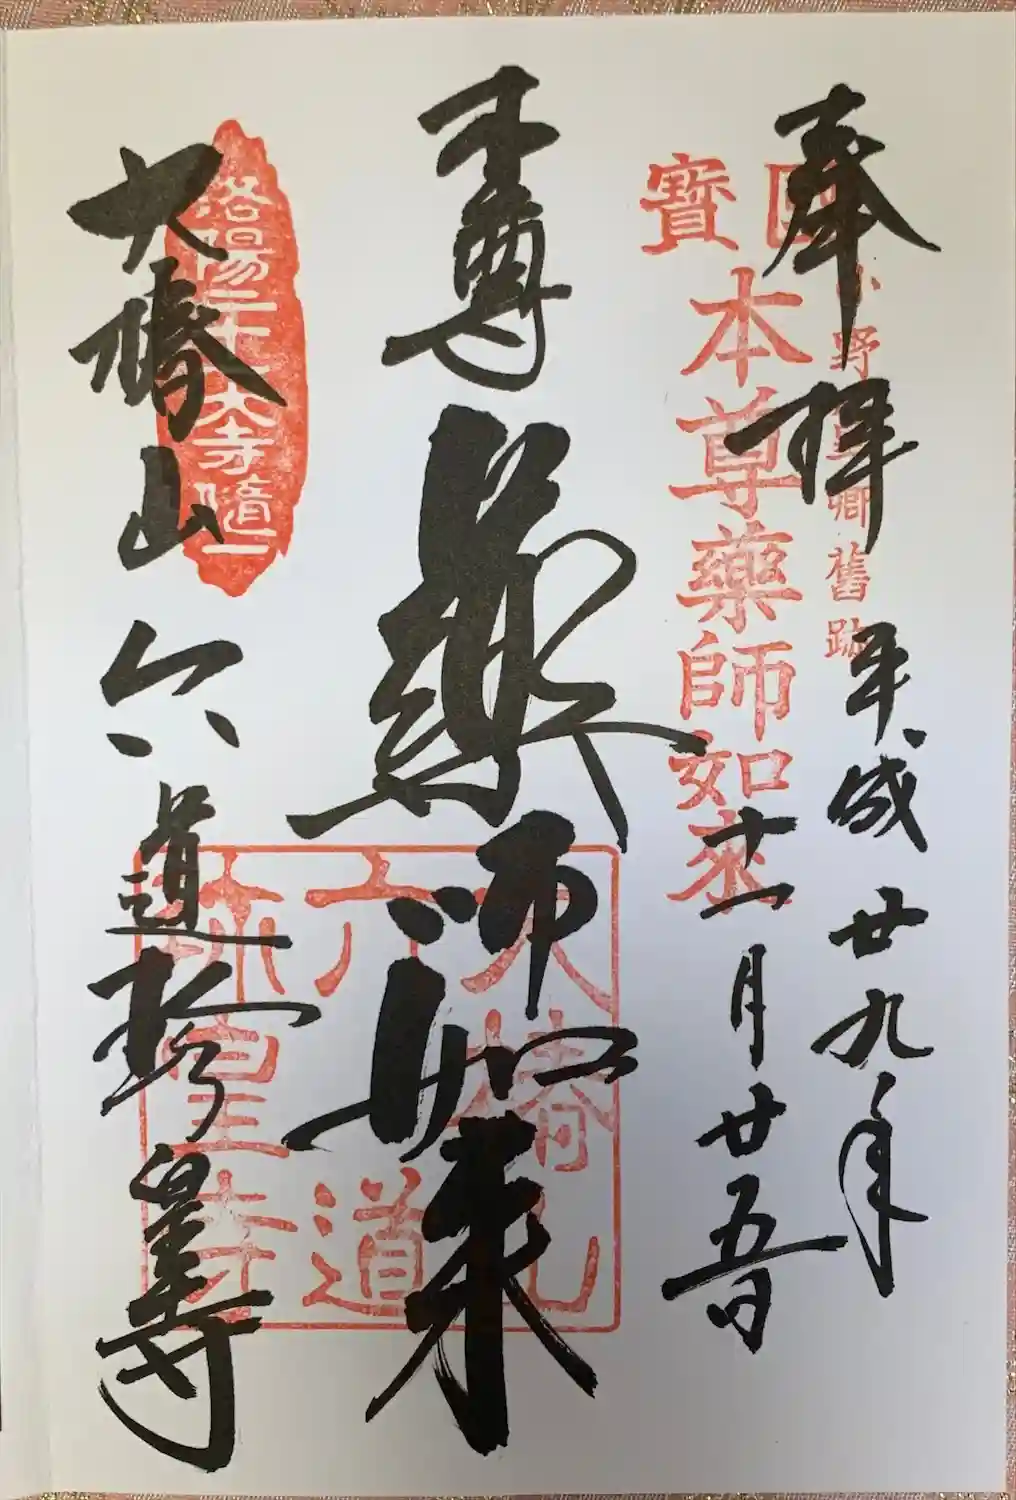 奉拝
平成廿九年
十一月廿五日
小野篁卿舊跡
國寶
本尊藥師如來
本尊
薬師如来
大椿山
六道珍皇寺
洛陽二十七大寺隨一
大椿山
六道
珎皇寺